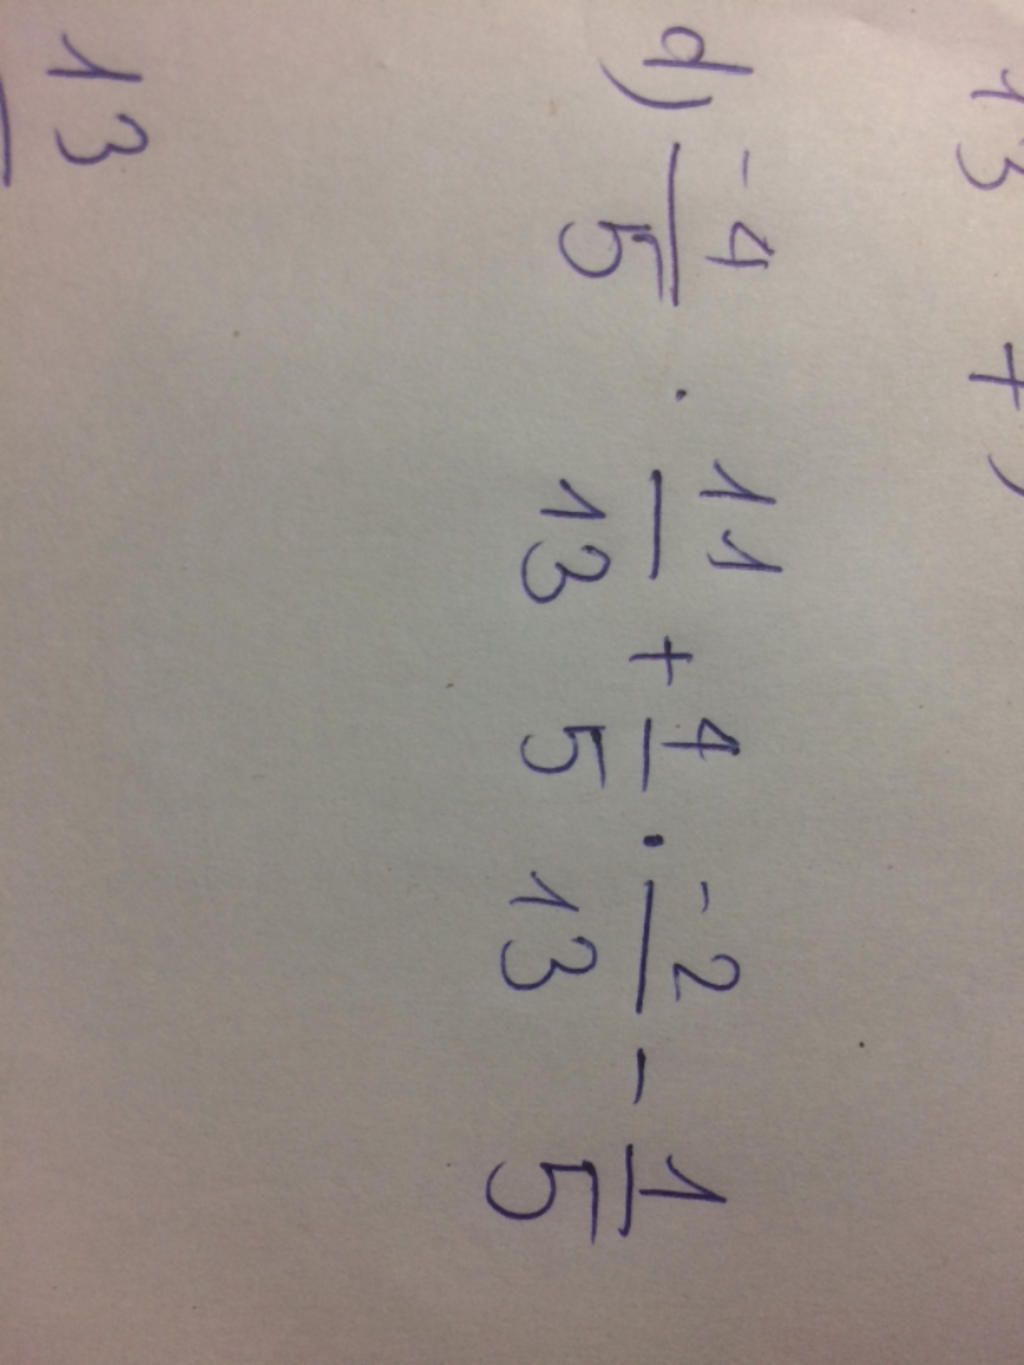 13 + 
d) -4/5 . 11/13 + 4/5 . -2/13 - 1/5
13